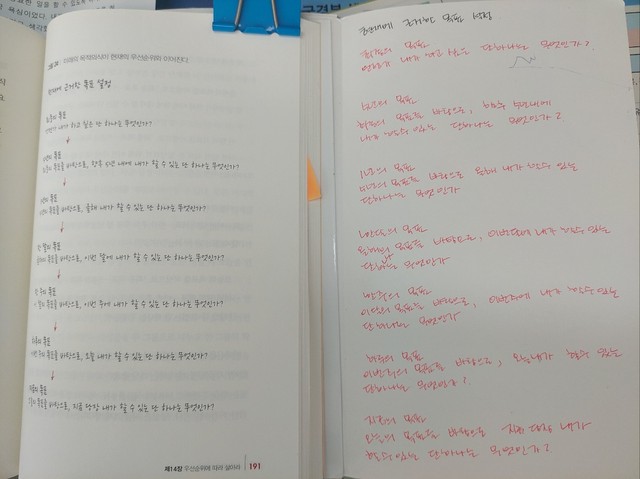 그림 24 미래의 목적의식이 현재의 우선순위와 이어진다
현재에 근거한 목표 설정
최종의 목표
언젠가 내가 하고 싶은 단 하나는 무엇인가?
5년의 목표
최종의 목표를 바탕으로, 향후 5년 내에 내가 할 수 있는 단 하나는 무엇인가?
1년의 목표
5년의 목표를 바탕으로, 올해 내가 할 수 있는 단 하나는 무엇인가?
한 달의 목표
올해의 목표를 바탕으로, 이번 달에 내가 할 수 있는 단 하나는 무엇인가?
한 주의 목표
이 달의 목표를 바탕으로, 이번 주에 내가 할 수 있는 단 하나는 무엇인가?
하루의 목표
이번 주의 목표를 바탕으로, 오늘 내가 할 수 있는 단 하나는 무엇인가?
지금의 목표
오늘의 목표를 바탕으로, 지금 당장 내가 할 수 있는 단 하나는 무엇인가?
제14장 우선순위에 따라 살아라 191
현재에 근거한 목표 설정
최종의 목표
언젠가 내가 하고 싶은 단 하나는 무엇인가?
5년의 목표
최종의 목표를 바탕으로, 향후 5년내에
내가 할수 있는 단하나는 무엇인가?
1년의 목표
5년의 목표를 바탕으로 올해 내가 할수 있는
단하나는 무엇인가
한달의 목표
올해의 목표를 바탕으로, 이번달에 내가 할수 있는
단하나는 무엇인가
한주의 목표
이달의 목표를 바탕으로, 이번주에 내가 할수 있는
단하나는 무엇인가
하루의 목표
이번주의 목표를 바탕으로, 오늘 내가 할수 있는
단하나는 무엇인가?
지금의 목표
오늘의 목표를 바탕으로 지금 당장 내가
할수 있는 단하나는 무엇인가?